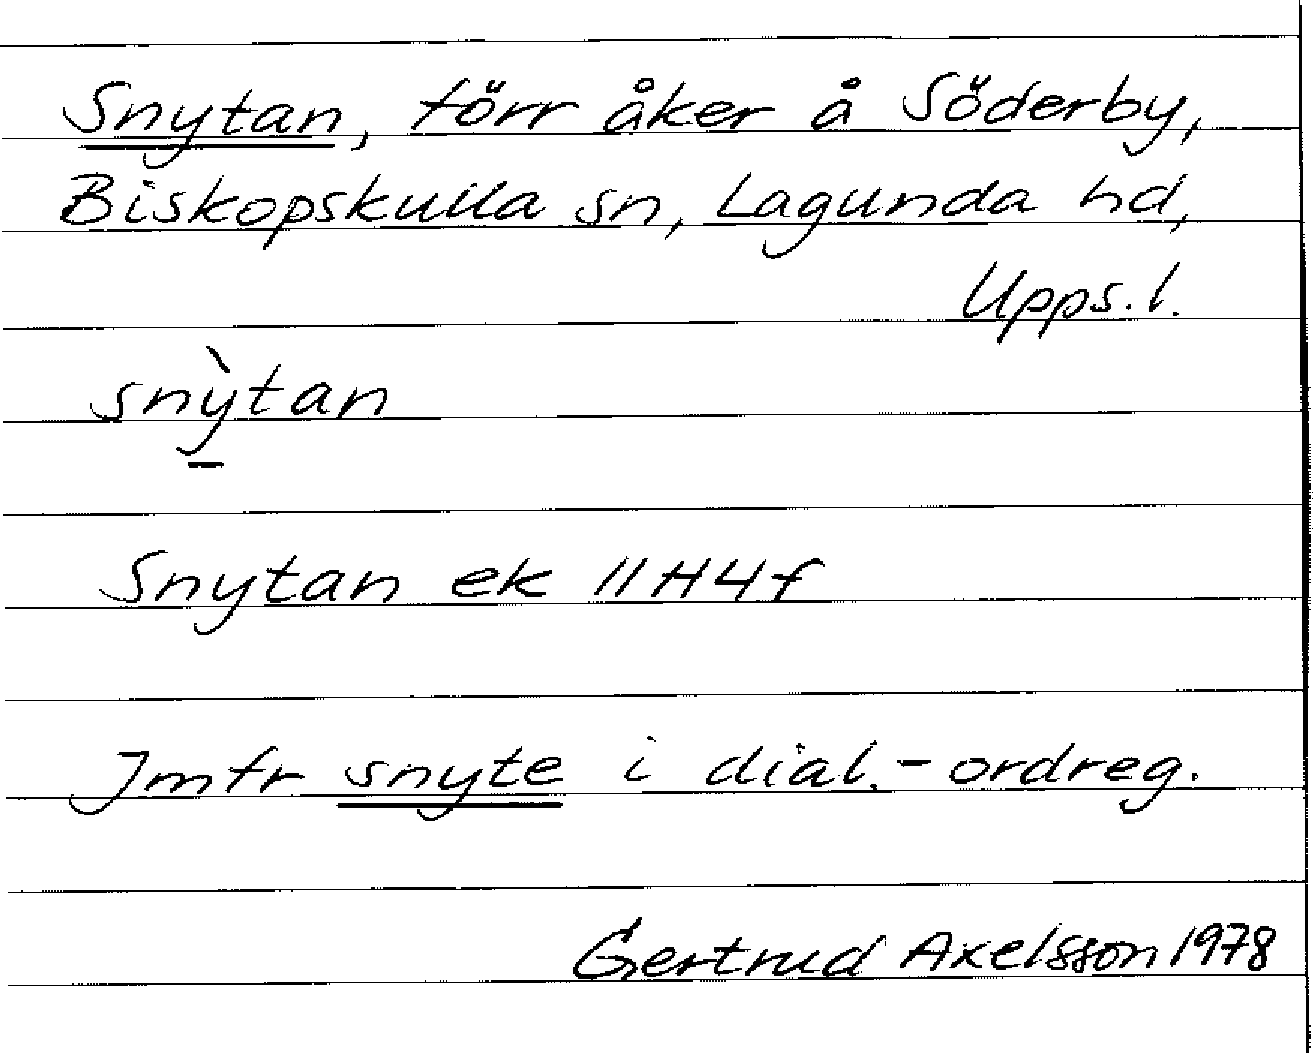 Snytan, förr åker å Söderby,
Biskopskulla sn, Lagunda hd,
Upps. l.
snỳtan
Snytan ek 11H4f
Jmfr snyte i dial.-ordreg.
Gertrud Axelsson 1978